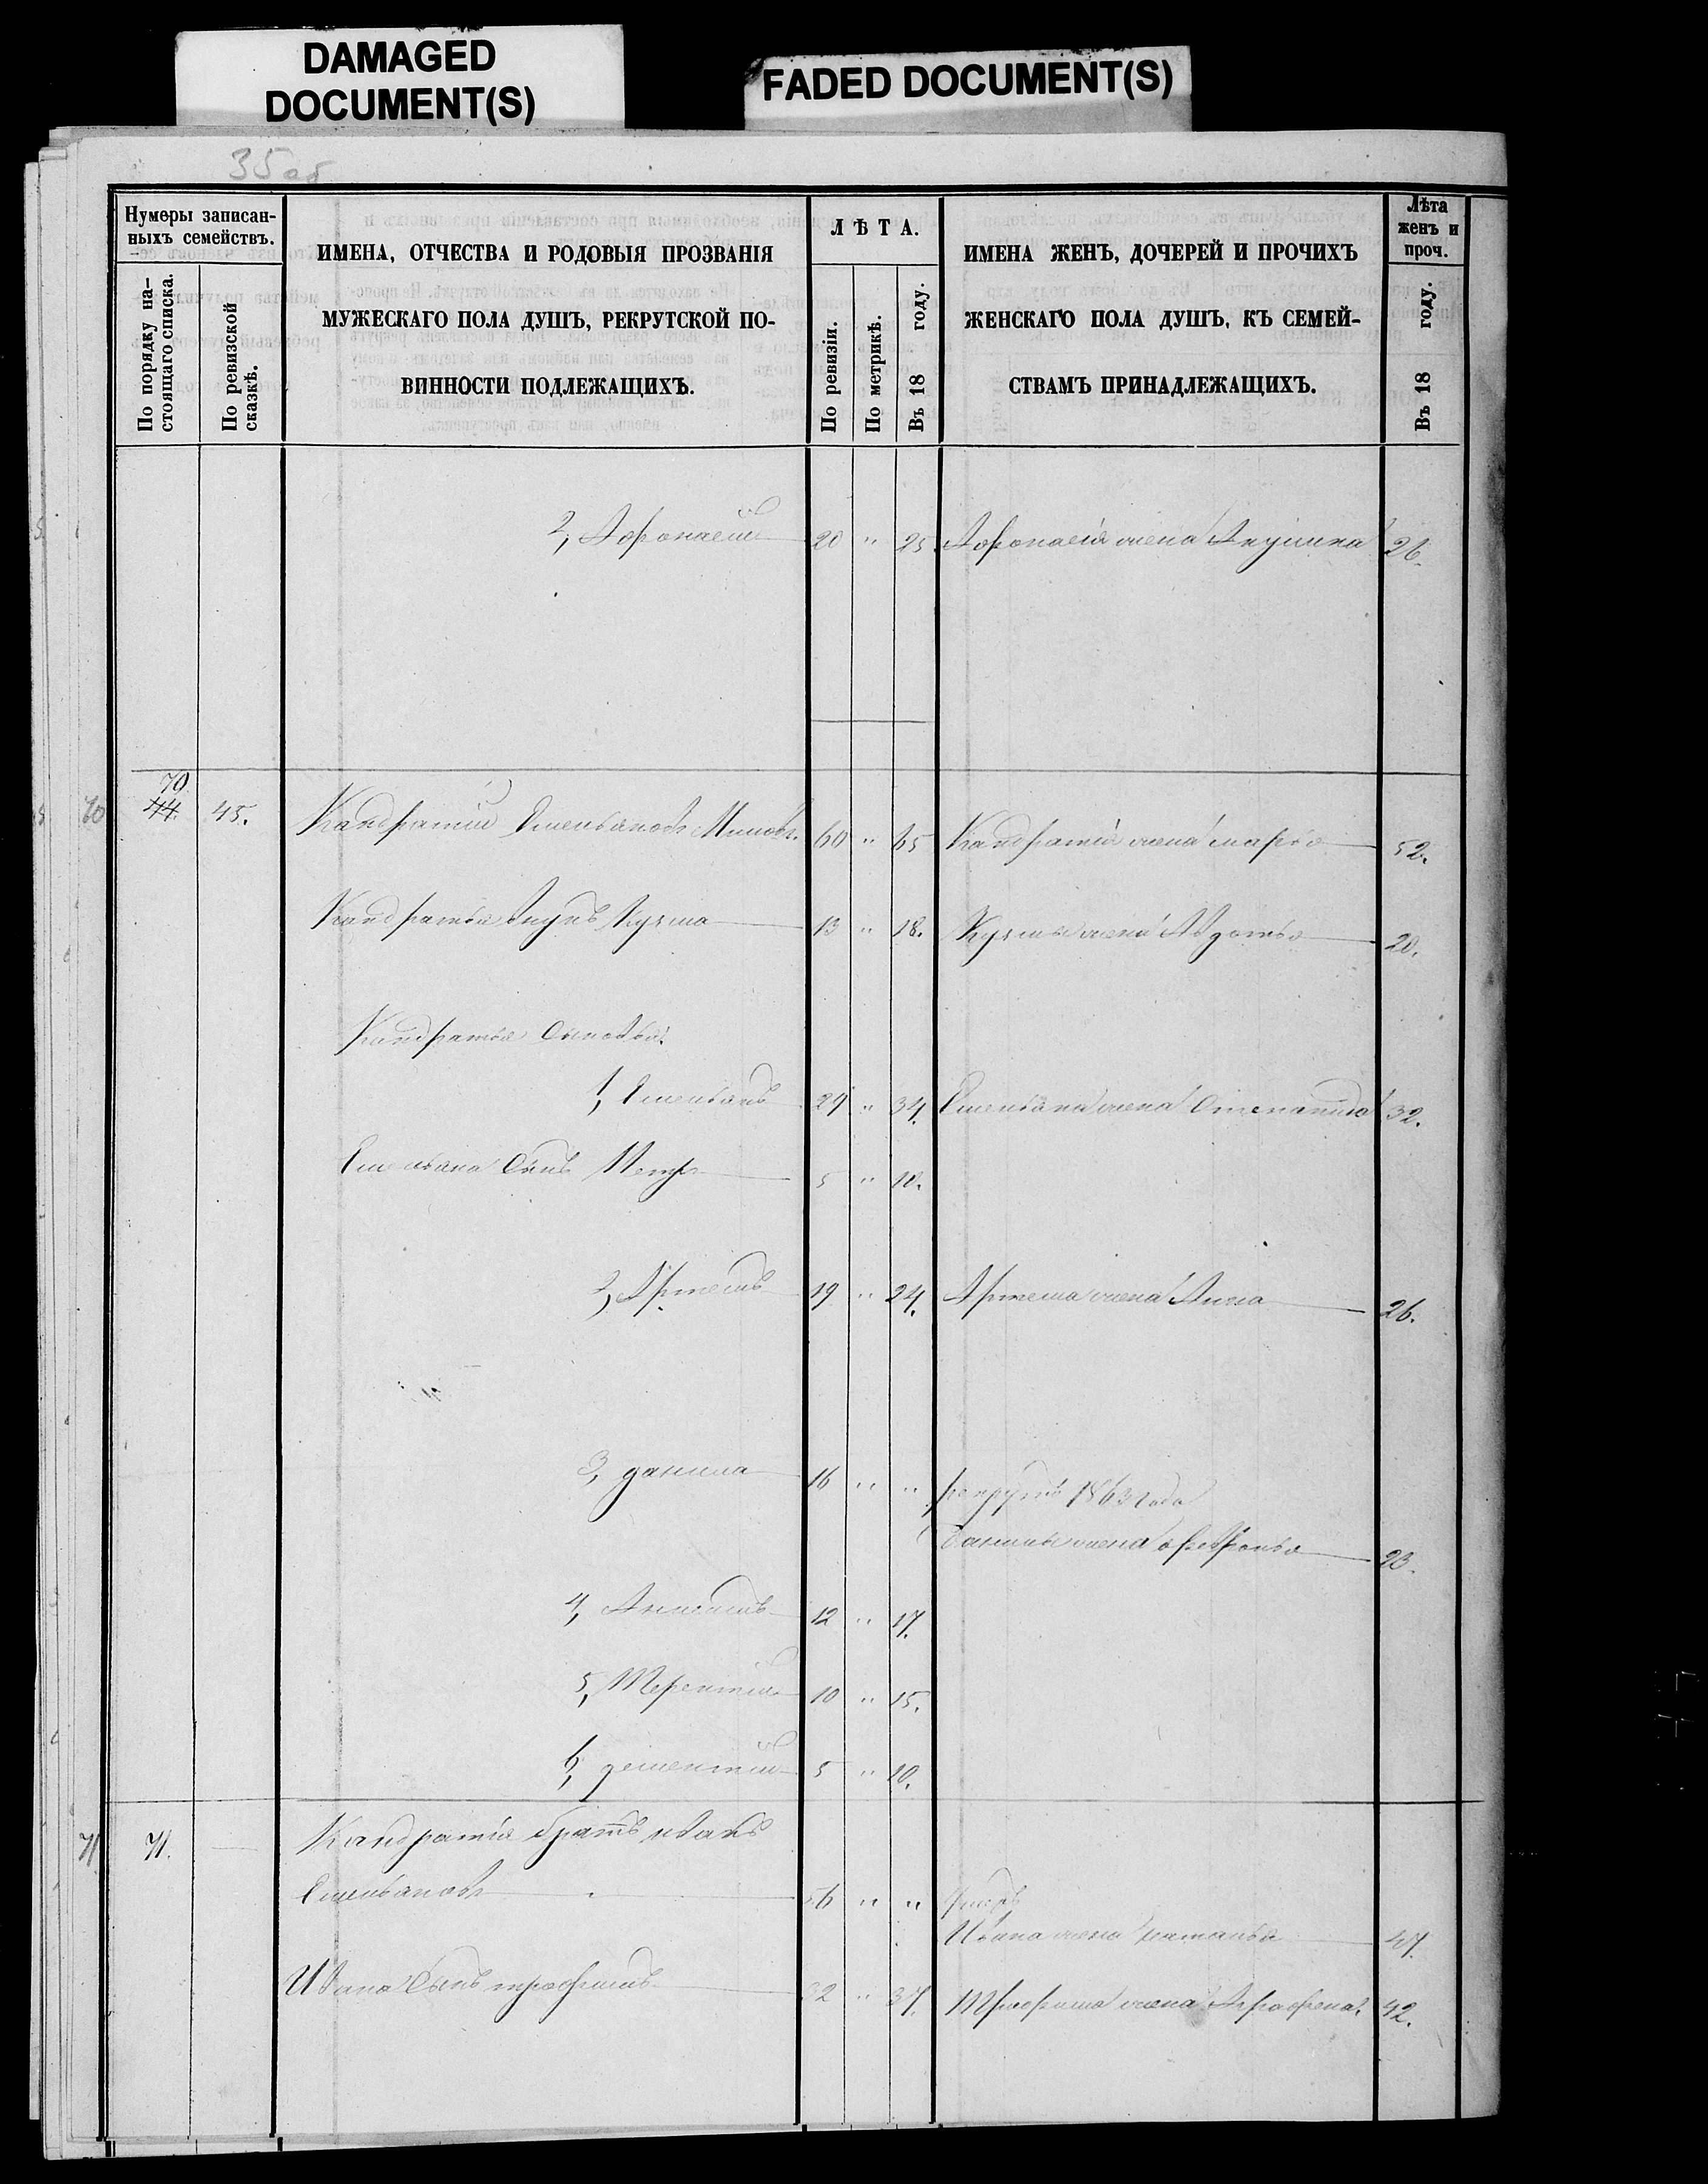 DAMAGED
DOCUMENT(S)
FADED DOCUMENT(S)
35 об
Нумеры записан-
ныхъ семействъ.
По порядку на-
стоящаго списка.
По ревизской
сказкѣ.
ИМЕНА, ОТЧЕСТВА И РОДОВЫЯ ПРОЗВАНІЯ
МУЖЕСКАГО ПОЛА ДУШЪ, РЕКРУТСКОЙ ПО-
ВИННОСТИ ПОДЛЕЖАЩИХЪ.
ЛѢТА.
По ревизіи.
По метрикѣ.
Въ 18 году.
ИМЕНА ЖЕНЪ, ДОЧЕРЕЙ И ПРОЧИХЪ
ЖЕНСКАГО ПОЛА ДУШЪ, КЪ СЕМЕЙ-
СТВАМЪ ПРИНАДЛЕЖАЩИХЪ.
Лѣта
женъ и
проч.
Въ 18 году.
2, Афонасий 20 " 25 Афонасія жена Акулина 26.
70
70 44. 45. Кандратий Емельяновъ 60 " 65 Кандратія жена марья 52.
Кандратья внукъ Кузма 13 " 18. Кузмы жена Авдотья 20.
Кандратья сыновья:
1, Емельянъ 29 " 34. Емельяна жена Степанида 32.
Емельяна сынъ Петръ 5 " 10.
2, Артемъ 19 " 24. Артема жена Анна 26.
3, данила 16 " " рекрутъ 1863 года
Данилы жена 23.
4, 12 " 17.
5, Терентий 10 " 15.
6, дементий 5 " 10.
71 71. Кандратія братъ иванъ
Емельяновъ 56 " " умеръ
Ивана жена наталья 47.
Ивана сынъ трофимъ 32 " 37. Трофима жена Аграфена. 42.